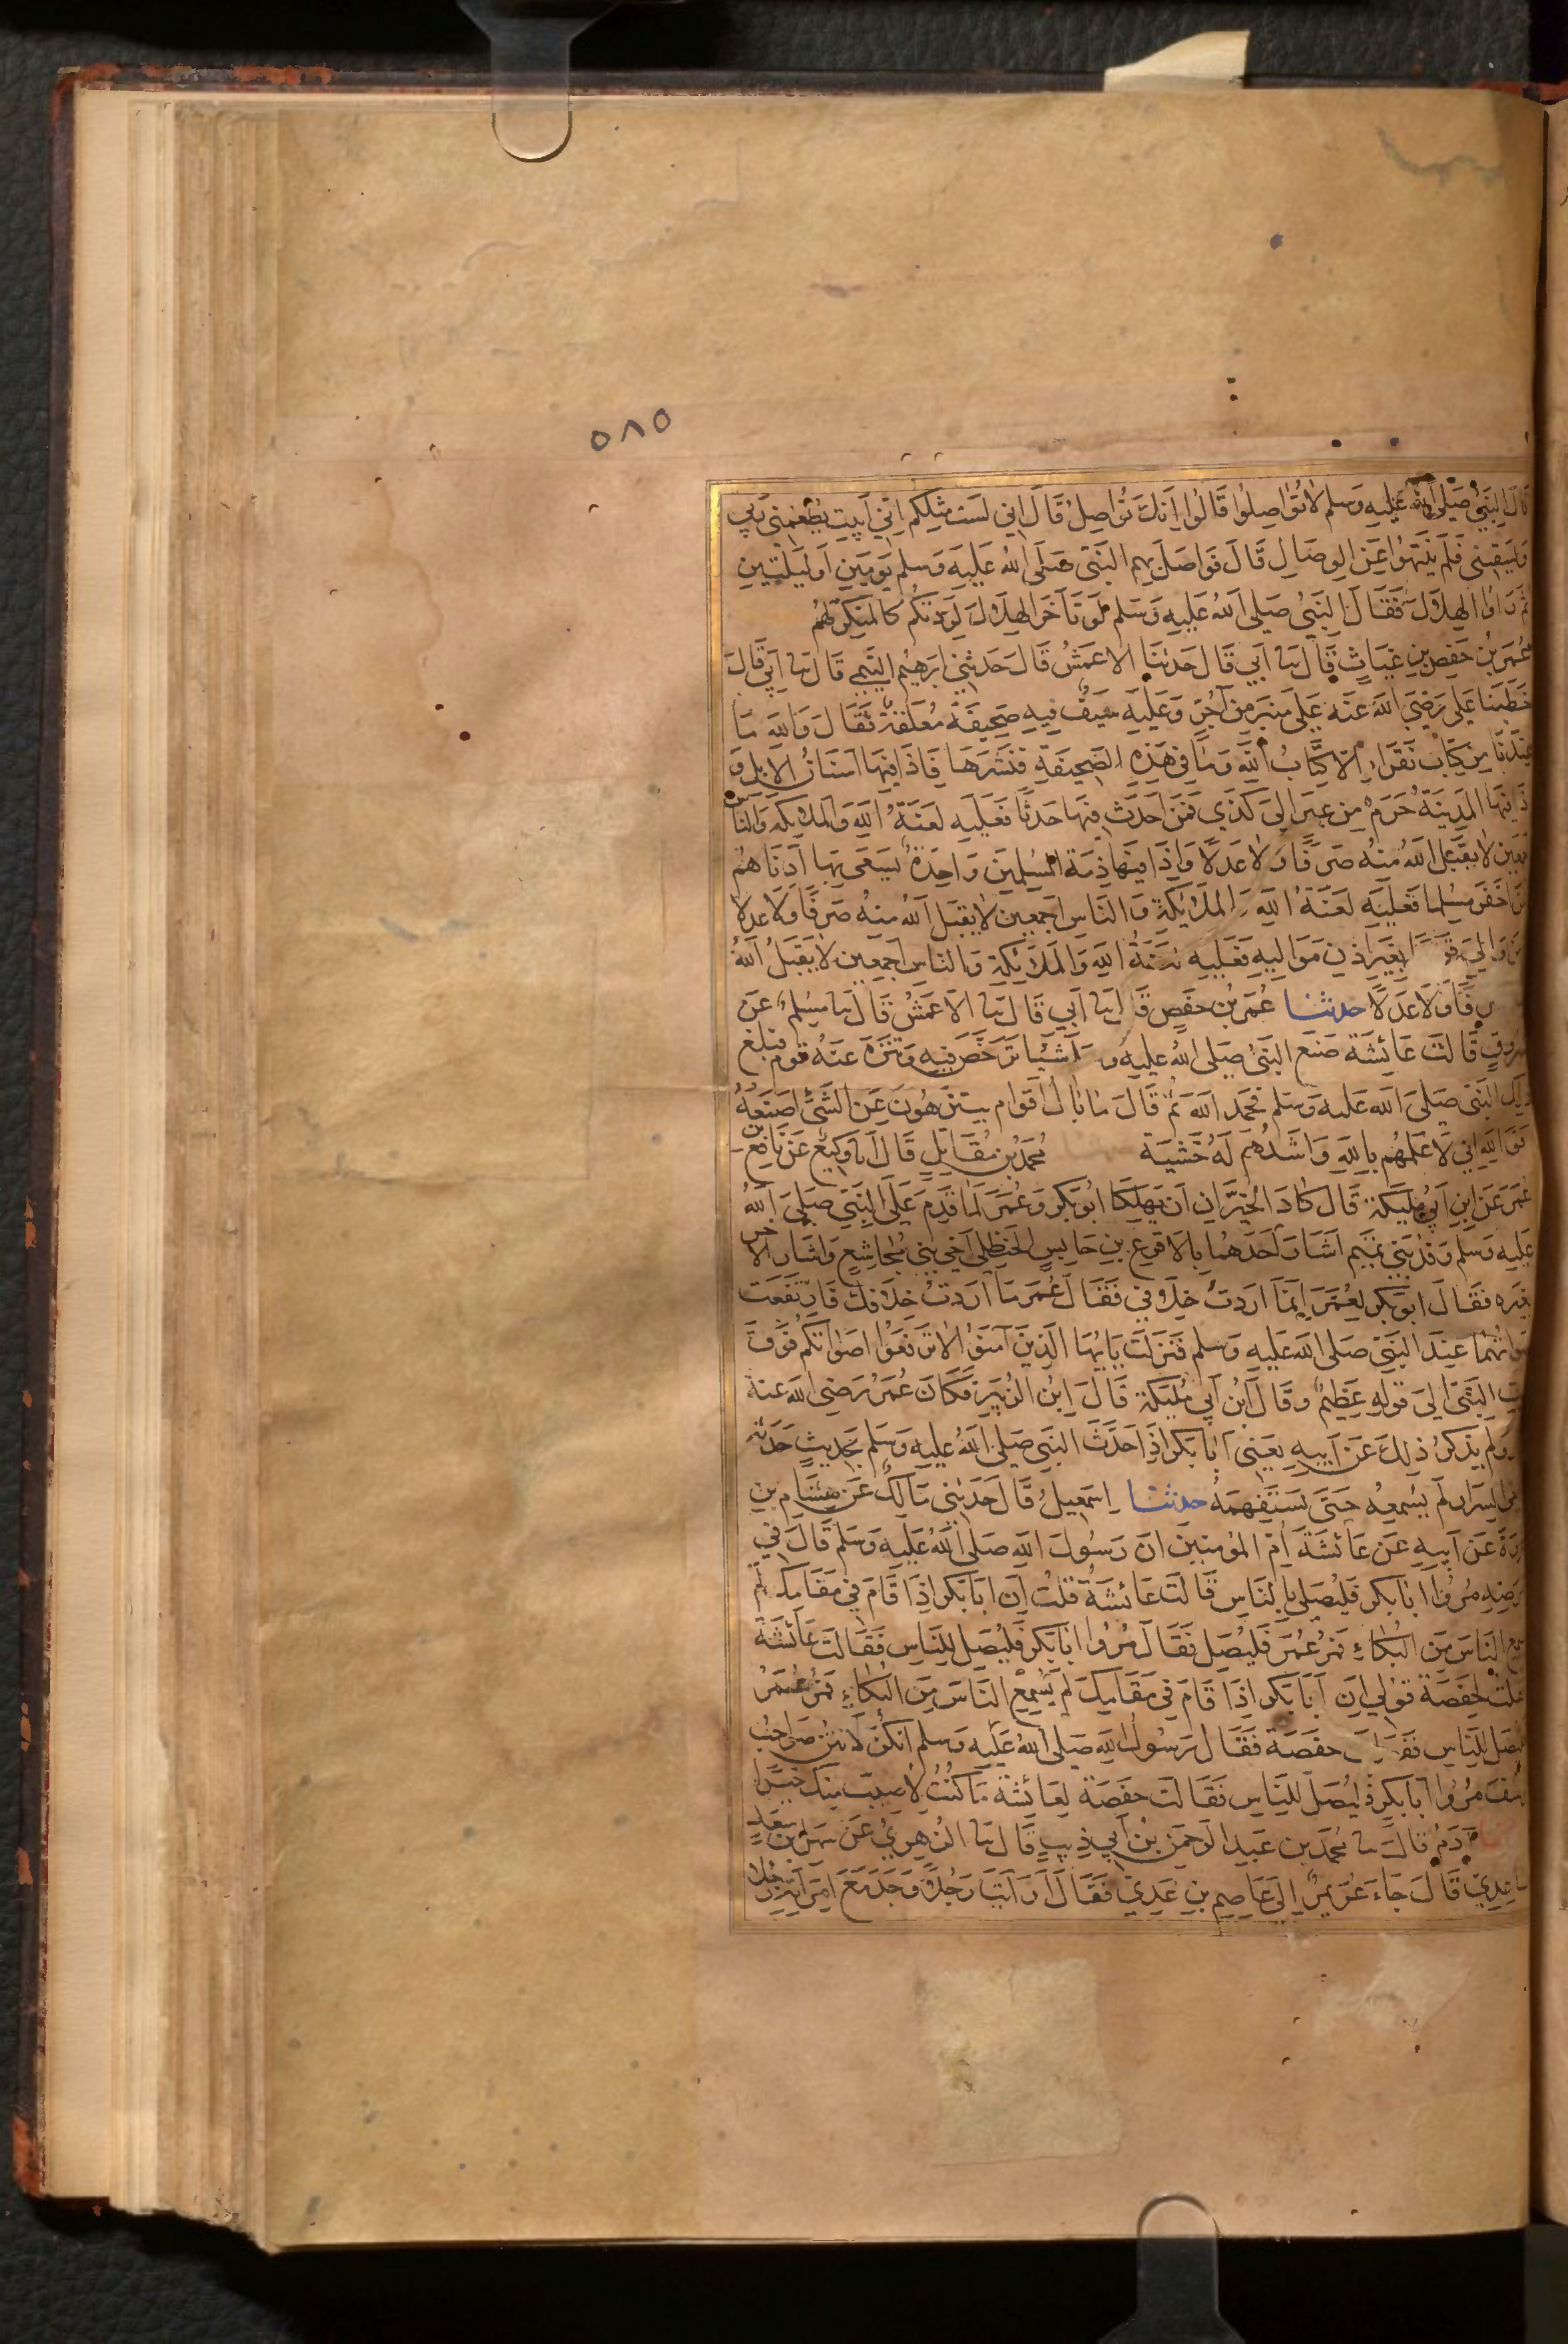 ٥٨٥
قال النبي صلى الله عليه وسلم لا تواصلوا قالوا انك تواصل قال اني لست مثلكم اني ابيت يطعمني ربي
ويسقيني فلم ينتهوا عن الوصال قال فواصل بهم النبي صلى الله عليه وسلم يومين او ليلتين
ثم راوا الهلال فقال النبي صلى الله عليه وسلم لو تاخر الهلال لزدتكم كالمنكر لهم
عمر بن حفص بن غياث قال نا ابي قال حدثنا الاعمش قال حدثني ابرهيم التيمي قال نا ابي قال
خطبنا علي رضي الله عنه على منبر من آجر وعليه سيف فيه صحيفة معلقة فقال والله ما
عندنا من كتاب نقرا الا كتاب الله وما في هذه الصحيفة فنشرها فاذا فيها اسنان الابل و
ذا فيها المدينة حرم من عير الى كذي فمن احدث فيها حدثا فعليه لعنة الله والملائكة والناس
لا يقبل الله منه صرفا ولا عدلا واذا فيها ذمة المسلمين واحدة يسعى بها ادناهم
اخفر مسلما فعليه لعنة الله والملائكة والناس اجمعين لا يقبل الله منه صرفا ولا عدلا
والى قو بغير اذن مواليه فعليه لعنة الله والملائكة والناس اجمعين لا يقبل الله
فا ولا عدلا حدثنا عمر بن حفص قال نا ابي قال نا الاعمش قال نا مسلم عن
مسروق قالت عائشة صنع النبي صلى الله عليه وسلم شيئا ترخص فيه وتنزه عنه قوم فبلغ
ذلك النبي صلى الله عليه وسلم فحمد الله ثم قال ما بال اقوام يتنزهون عن الشئ اصنعه
فوالله اني لاعلمهم بالله واشدهم له خشية محمد بن مقاتل قال انا وكيع عن نافع بن
عمر عن ابن ابي مليكة قال كاد الخيران ان يهلكا ابو بكر وعمر لما قدم على النبي صلى الله
عليه وسلم وفد بني تميم اشار احدهما بالاقرع بن حابس الحنظلي اخي بني مجاشع واشار الاخر
بغيره فقال ابو بكر لعمر انما اردت خلافي فقال عمر ما اردت خلافك فارتفعت
اصواتهما عند النبي صلى الله عليه وسلم فنزلت يايها الذين آمنوا لا ترفعوا اصواتكم فوق
صوت النبي الى قوله عظيم وقال ابن ابي مليكة قال ابن الزبير فكان عمر رضي الله عنه
ولم يذكر ذلك عن ابيه يعني ابا بكر اذا حدث النبي صلى الله عليه وسلم بحديث حدثه
السرار لم يسمعه حتى يستفهمه حدثنا اسمعيل قال حدثني مالك عن هشام بن
عروة عن ابيه عن عائشة ام المؤمنين ان رسول الله صلى الله عليه وسلم قال في
مرضه مروا ابا بكر فليصلي بالناس قالت عائشة قلت ان ابا بكر اذا قام في مقامك لم
يسمع الناس من البكاء فمر عمر فليصل فقال مروا ابا بكر فليصل للناس فقالت عائشة
فقلت لحفصة قولي ان ابا بكر اذا قام في مقامك لم يسمع الناس من البكاء فمر عمر
فليصل للناس حفصة فقال رسول الله صلى الله عليه وسلم انكن لانتن صواحب
يوسف مروا ابا بكر فليصل للناس فقالت حفصة لعائشة ما كنت لاصيب منك خيرا
آدم قال نا محمد بن عبد الرحمن بن ابي ذيب قال نا الزهري عن سهل بن سعد
الساعدي قال جاء عويمر الى عاصم بن عدي فقال ارايت رجلا وجد مع امراته رجلا